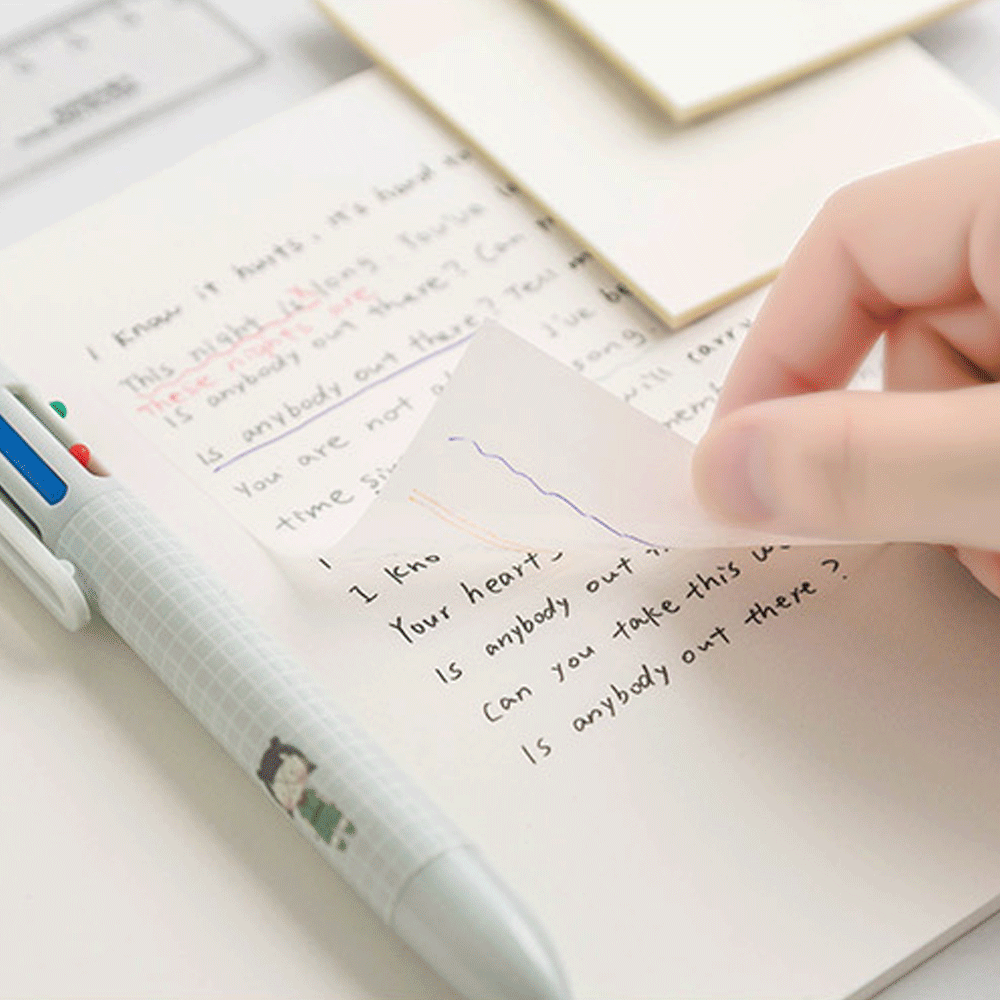 I know it hurts, it's hard to
This night is long. You've
These nights are
Is anybody out there? Can
Is anybody out there? Tell
You are not I've be
time song
will carry
I kno
Your heart
Is anybody out
Can you take this
Is anybody out there?